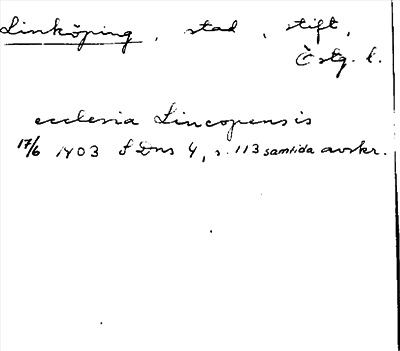 Linköping, stad, stift,
Östg. l.
ecclesia Lincopensis
17/6 1403 SDns 4, s. 113 samtida avskr.